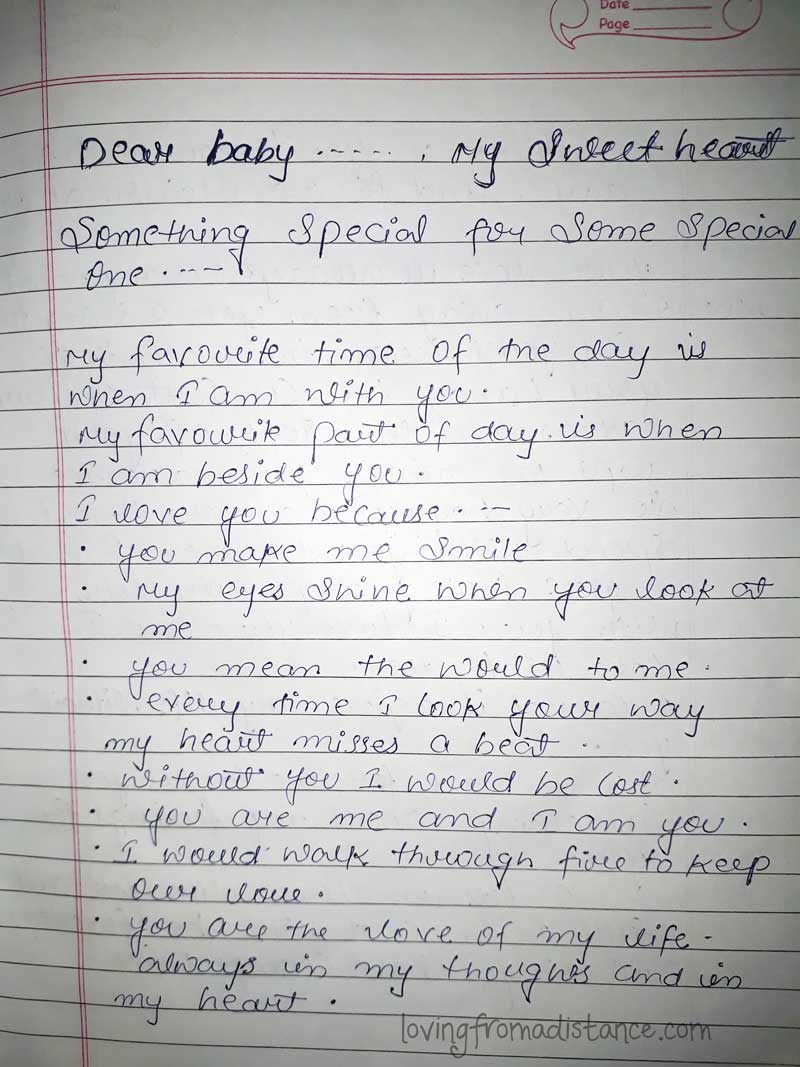 Date
Page
Dear baby ...... . My Sweet heart
Something special for some special
one .---
My favourite time of the day is
when I am with you.
My favourite part of day is when
I am beside you.
I love you because.--
• you make me smile
• My eyes shine when you look at
me
• you mean the would to me.
• every time I look your way
my heart misses a beat.
• without you I would be lost.
• you are me and I am you.
• I would walk through fire to keep
our love.
• you are the love of my life-
always in my thoughts and in
my heart.
lovingfromadistance.com